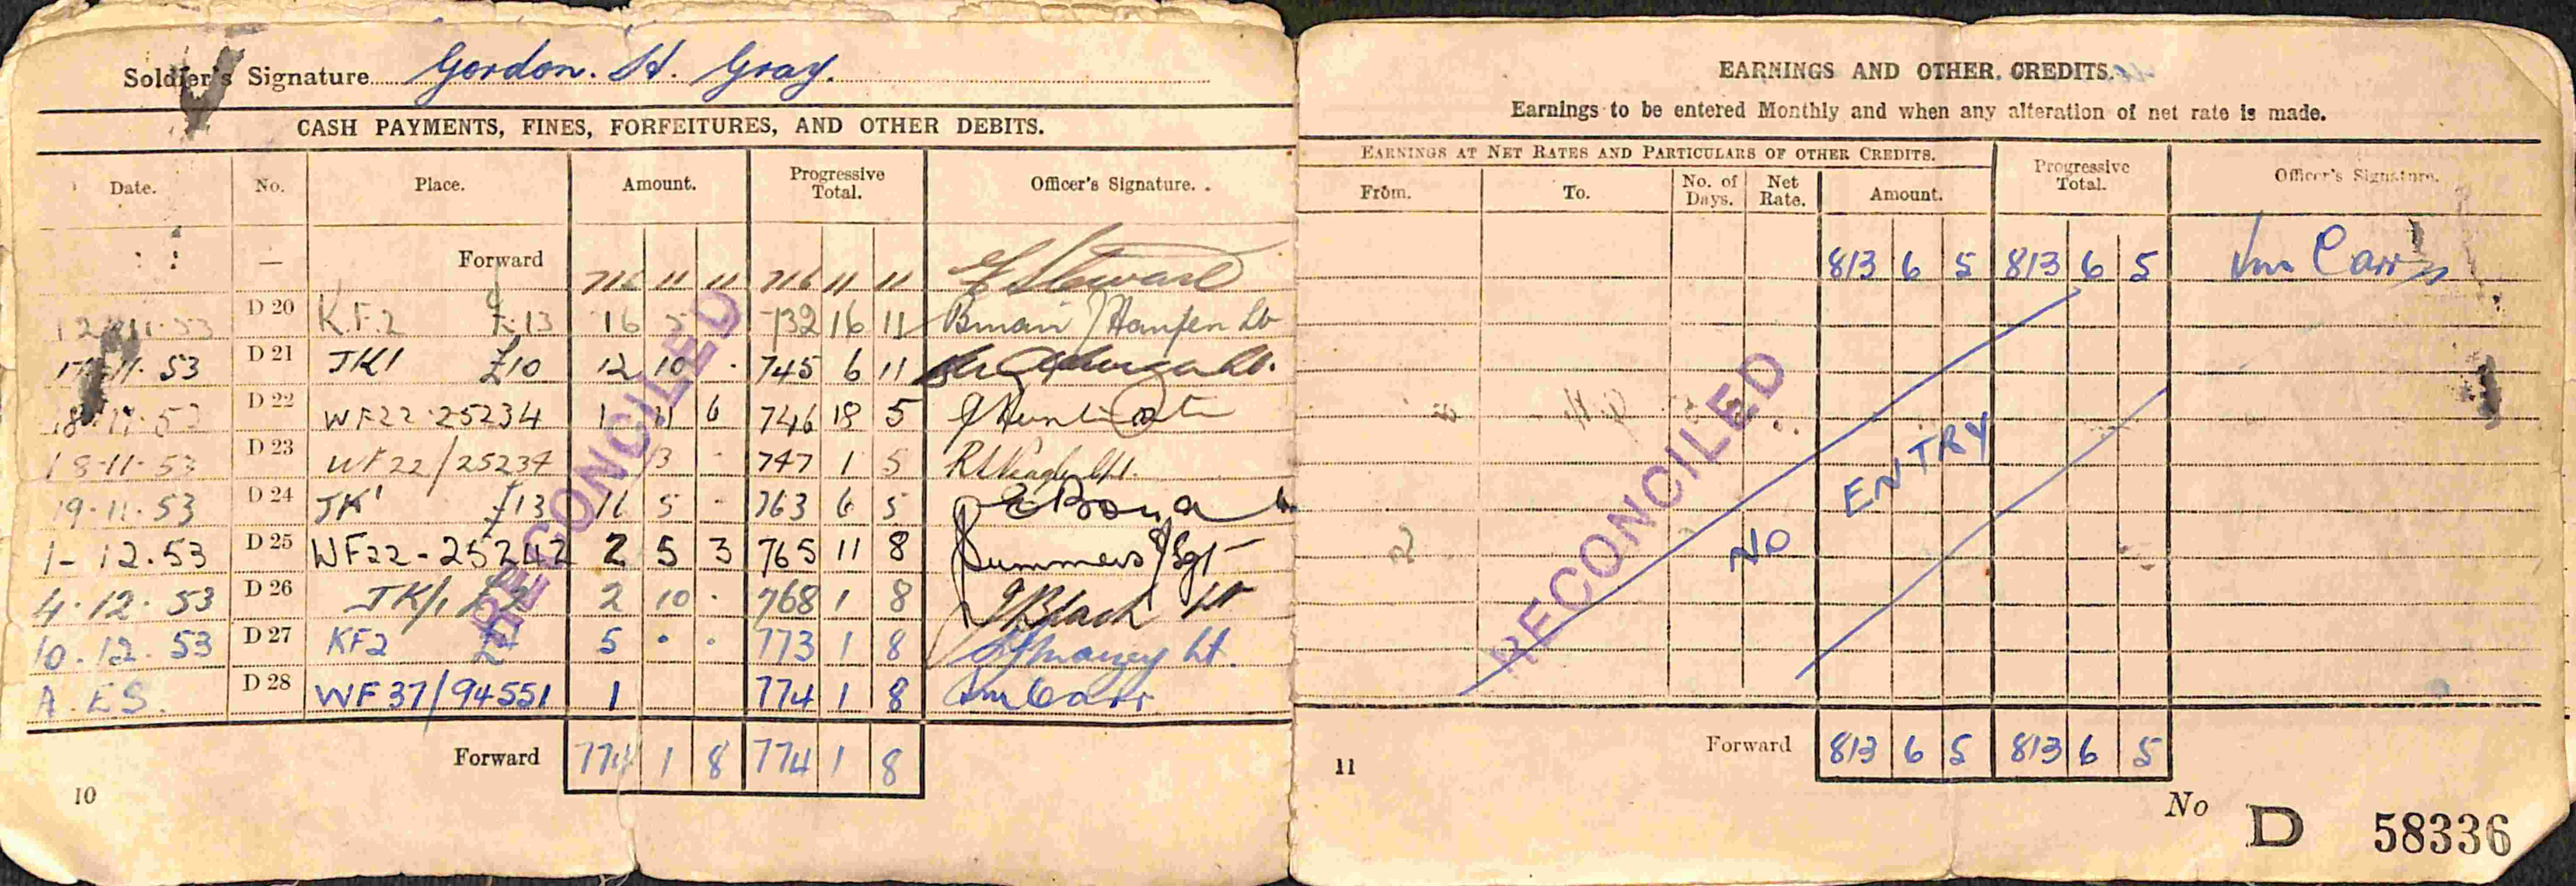 Soldier's Signature Gordon. H. Gray.
CASH PAYMENTS, FINES, FORFEITURES, AND OTHER DEBITS.
Date. No. Place. Amount. Progressive Total. Officer's Signature.
— Forward 716 11 11 716 11 11 E Steward
12.11.53 D 20 K.F.2 £13 16 5 - 732 16 11
17.11.53 D 21 JK1 £10 12 10 . 745 6 11
18.11.53 D 22 WF22 25234 1 11 6 746 18 5
18-11-53 D 23 WF22/25234 3 - 747 1 5
19.11.53 D 24 JK1 £13 16 5 - 763 6 5
1-12.53 D 25 WF22-25242 2 5 3 765 11 8 Summers Sgt
4.12.53 D 26 JK/1 £2 2 10 . 768 1 8 J Black Lt
10.12.53 D 27 KF2 5 . . 773 1 8 Lt.
A.E.S. D 28 WF37/94551 1 774 1 8 Wm Carr
Forward 774 1 8 774 1 8
RECONCILED
10
EARNINGS AND OTHER CREDITS.
Earnings to be entered Monthly and when any alteration of net rate is made.
EARNINGS AT NET RATES AND PARTICULARS OF OTHER CREDITS. Progressive Total. Officer's Signature.
From. To. No. of Days. Net Rate. Amount.
813 6 5 813 6 5 Wm Carr
NO ENTRY
RECONCILED
Forward 813 6 5 813 6 5
11
No D 58336